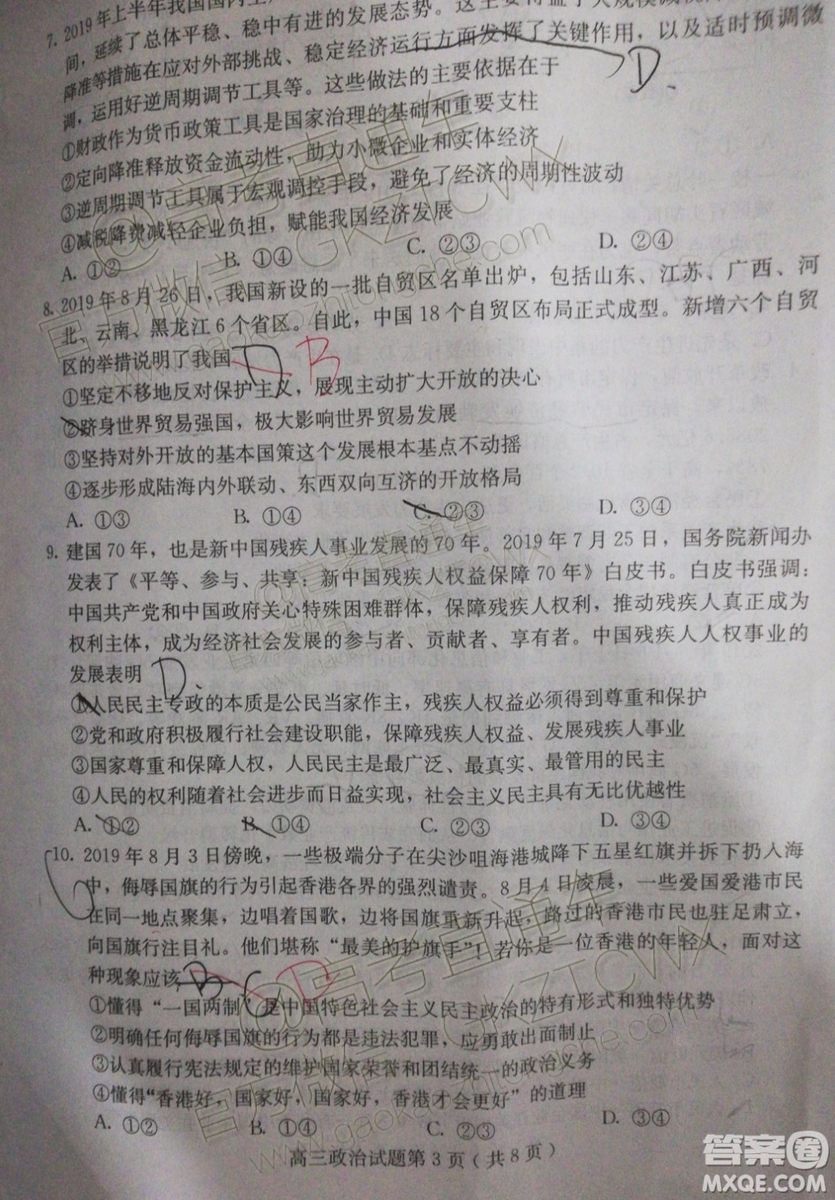 7. 2019年上半年我国国内生
间，延续了总体平稳、稳中有进的发展态势。这主要得益于大规模减税
降准等措施在应对外部挑战、稳定经济运行方面发挥了关键作用，以及适时预调微
调，运用好逆周期调节工具等。这些做法的主要依据在于
D.
①财政作为货币政策工具是国家治理的基础和重要支柱
②定向降准释放资金流动性，助力小微企业和实体经济
③逆周期调节工具属于宏观调控手段，避免了经济的周期性波动
④减税降费减轻企业负担，赋能我国经济发展
A. ①② B. ①④ C. ②③ D. ②④
8. 2019年8月26日，我国新设的一批自贸区名单出炉，包括山东、江苏、广西、河
北、云南、黑龙江6个省区。自此，中国18个自贸区布局正式成型。新增六个自贸
区的举措说明了我国 D B
①坚定不移地反对保护主义，展现主动扩大开放的决心
②跻身世界贸易强国，极大影响世界贸易发展
③坚持对外开放的基本国策这个发展根本基点不动摇
④逐步形成陆海内外联动、东西双向互济的开放格局
A. ①③ B. ①④ C. ②③ D. ②④
9. 建国70年，也是新中国残疾人事业发展的70年。2019年7月25日，国务院新闻办
发表了《平等、参与、共享：新中国残疾人权益保障70年》白皮书。白皮书强调：
中国共产党和中国政府关心特殊困难群体，保障残疾人权利，推动残疾人真正成为
权利主体，成为经济社会发展的参与者、贡献者、享有者。中国残疾人人权事业的
发展表明 D.
①人民民主专政的本质是公民当家作主，残疾人权益必须得到尊重和保护
②党和政府积极履行社会建设职能，保障残疾人权益、发展残疾人事业
③国家尊重和保障人权，人民民主是最广泛、最真实、最管用的民主
④人民的权利随着社会进步而日益实现，社会主义民主具有无比优越性
A. ①② B. ①④ C. ②③ D. ③④
10. 2019年8月3日傍晚，一些极端分子在尖沙咀海港城降下五星红旗并拆下扔人海
中，侮辱国旗的行为引起香港各界的强烈谴责。8月4日凌晨，一些爱国爱港市民
在同一地点聚集，边唱着国歌，边将国旗重新升起，路过的香港市民也驻足肃立，
向国旗行注目礼。他们堪称“最美的护旗手”！若你是一位香港的年轻人，面对这
种现象应该 B C D
①懂得“一国两制”是中国特色社会主义民主政治的特有形式和独特优势
②明确任何侮辱国旗的行为都是违法犯罪，应勇敢出面制止
③认真履行宪法规定的维护国家荣誉和团结统一的政治义务
④懂得“香港好，国家好，国家好，香港才会更好”的道理
A. ①② B. ①④ C. ②③ D. ③④
高三政治试题第3页（共8页）
答案圈
MXQE.COM